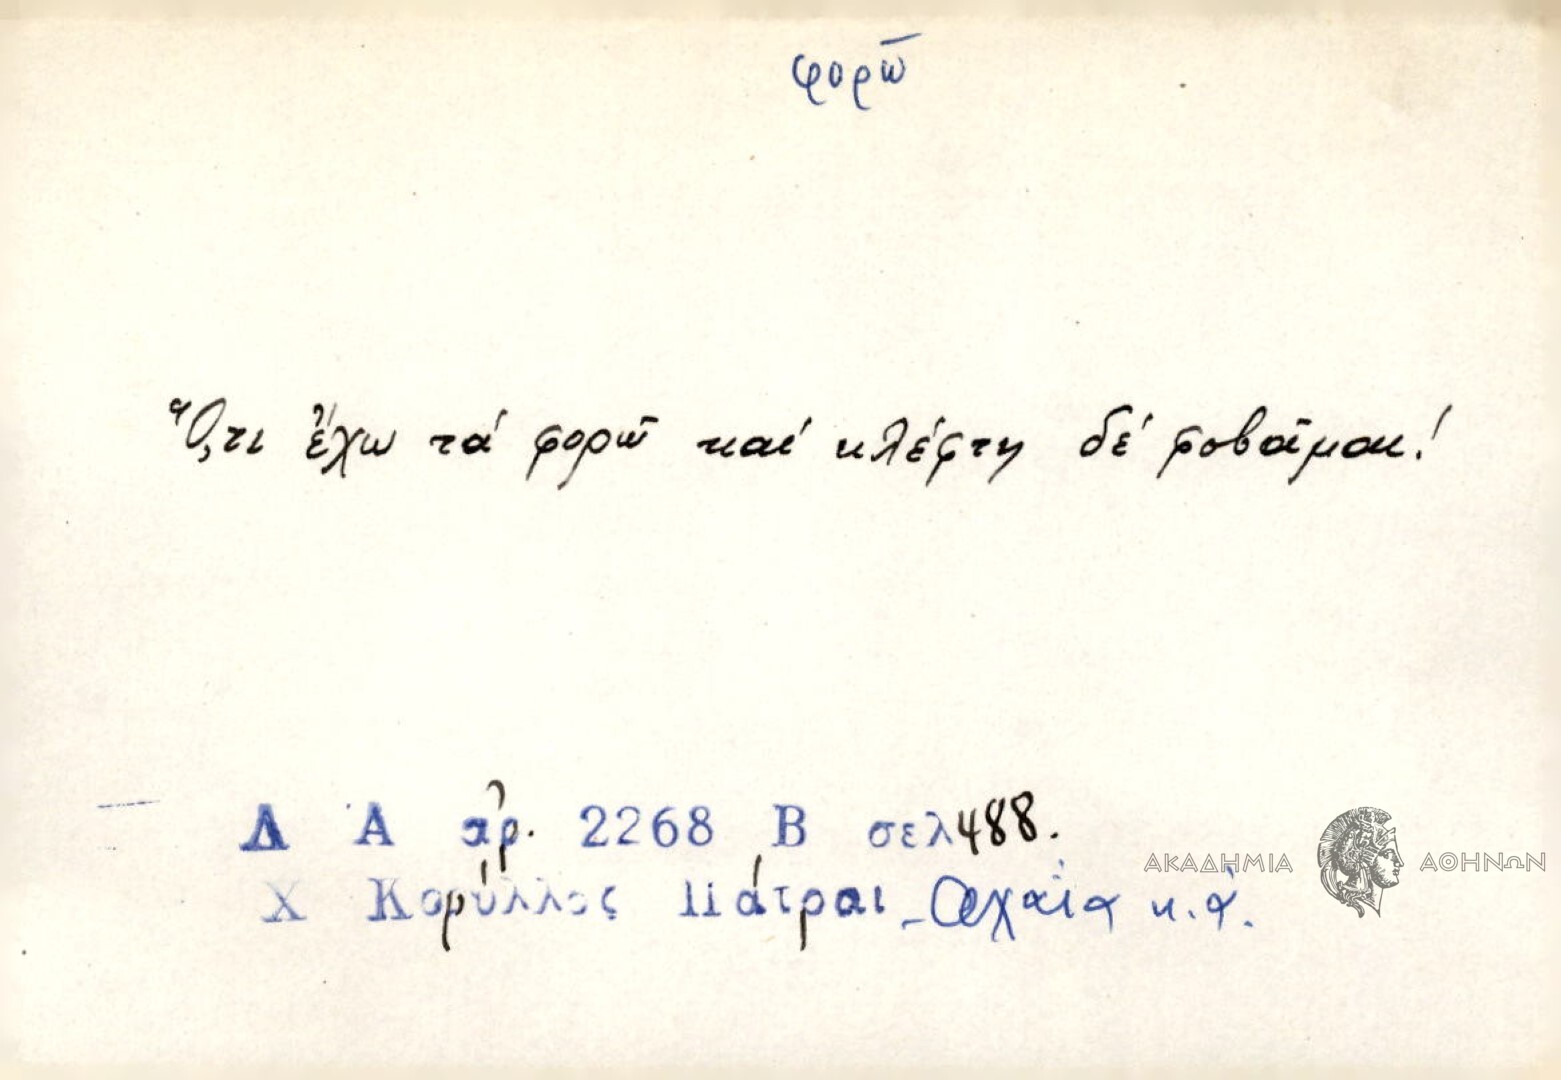 φορῶ
Ὅ,τι ἔχω τά φορῶ καί κλέφτη δέ φοβᾶμαι!
Δ Α ἀρ. 2268 Β σελ 488.
Χ Κορύλλος Πάτραι - Ἀχαΐα κ.ἀ.
ΑΚΑΔΗΜΙΑ ΑΘΗΝΩΝ